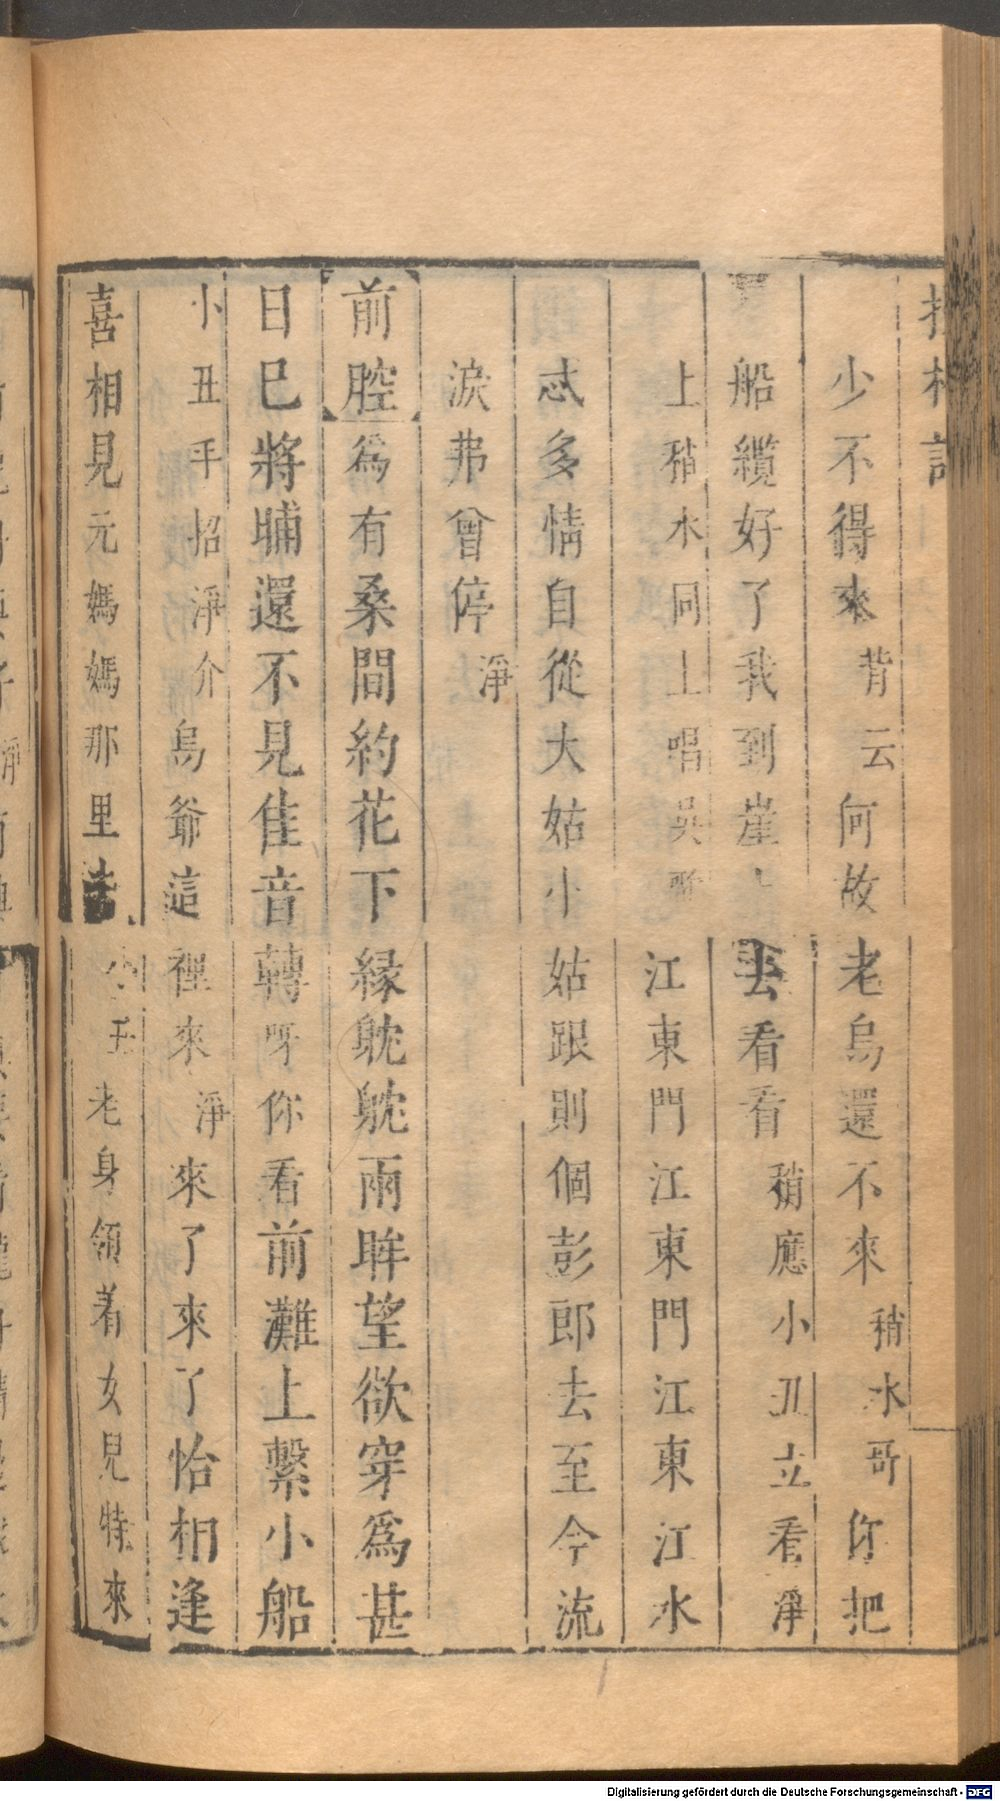 少不得來背云何故老烏還不來稍水哥你把
船纜好了我到崖上去看看稍應小丑立看淨
上稍水同上唱吳歌江東門江東門江東江水
忒多情自從大姑小姑跟則個彭郎去至今流
淚弗曾停淨
前腔爲有桑間約花下緣躭躭兩眸望欲穿爲甚
日已將晡還不見佳音轉呀你看前灘上繫小船
小丑手招淨介烏爺這裡來淨來了來了恰相逢
喜相見元媽媽那里去小丑老身領着女兒特來
Digitalisierung gefördert durch die Deutsche Forschungsgemeinschaft - DFG